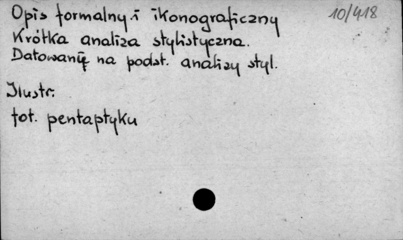 Opis formalny i ikonograficzny
10/418
Krótka analiza stylistyczna.
Datowanie na podst. analizy styl.
Ilustr.
fot. pentaptyku